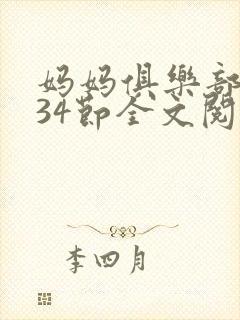 妈妈俱樂部
34節全文閱
李四月